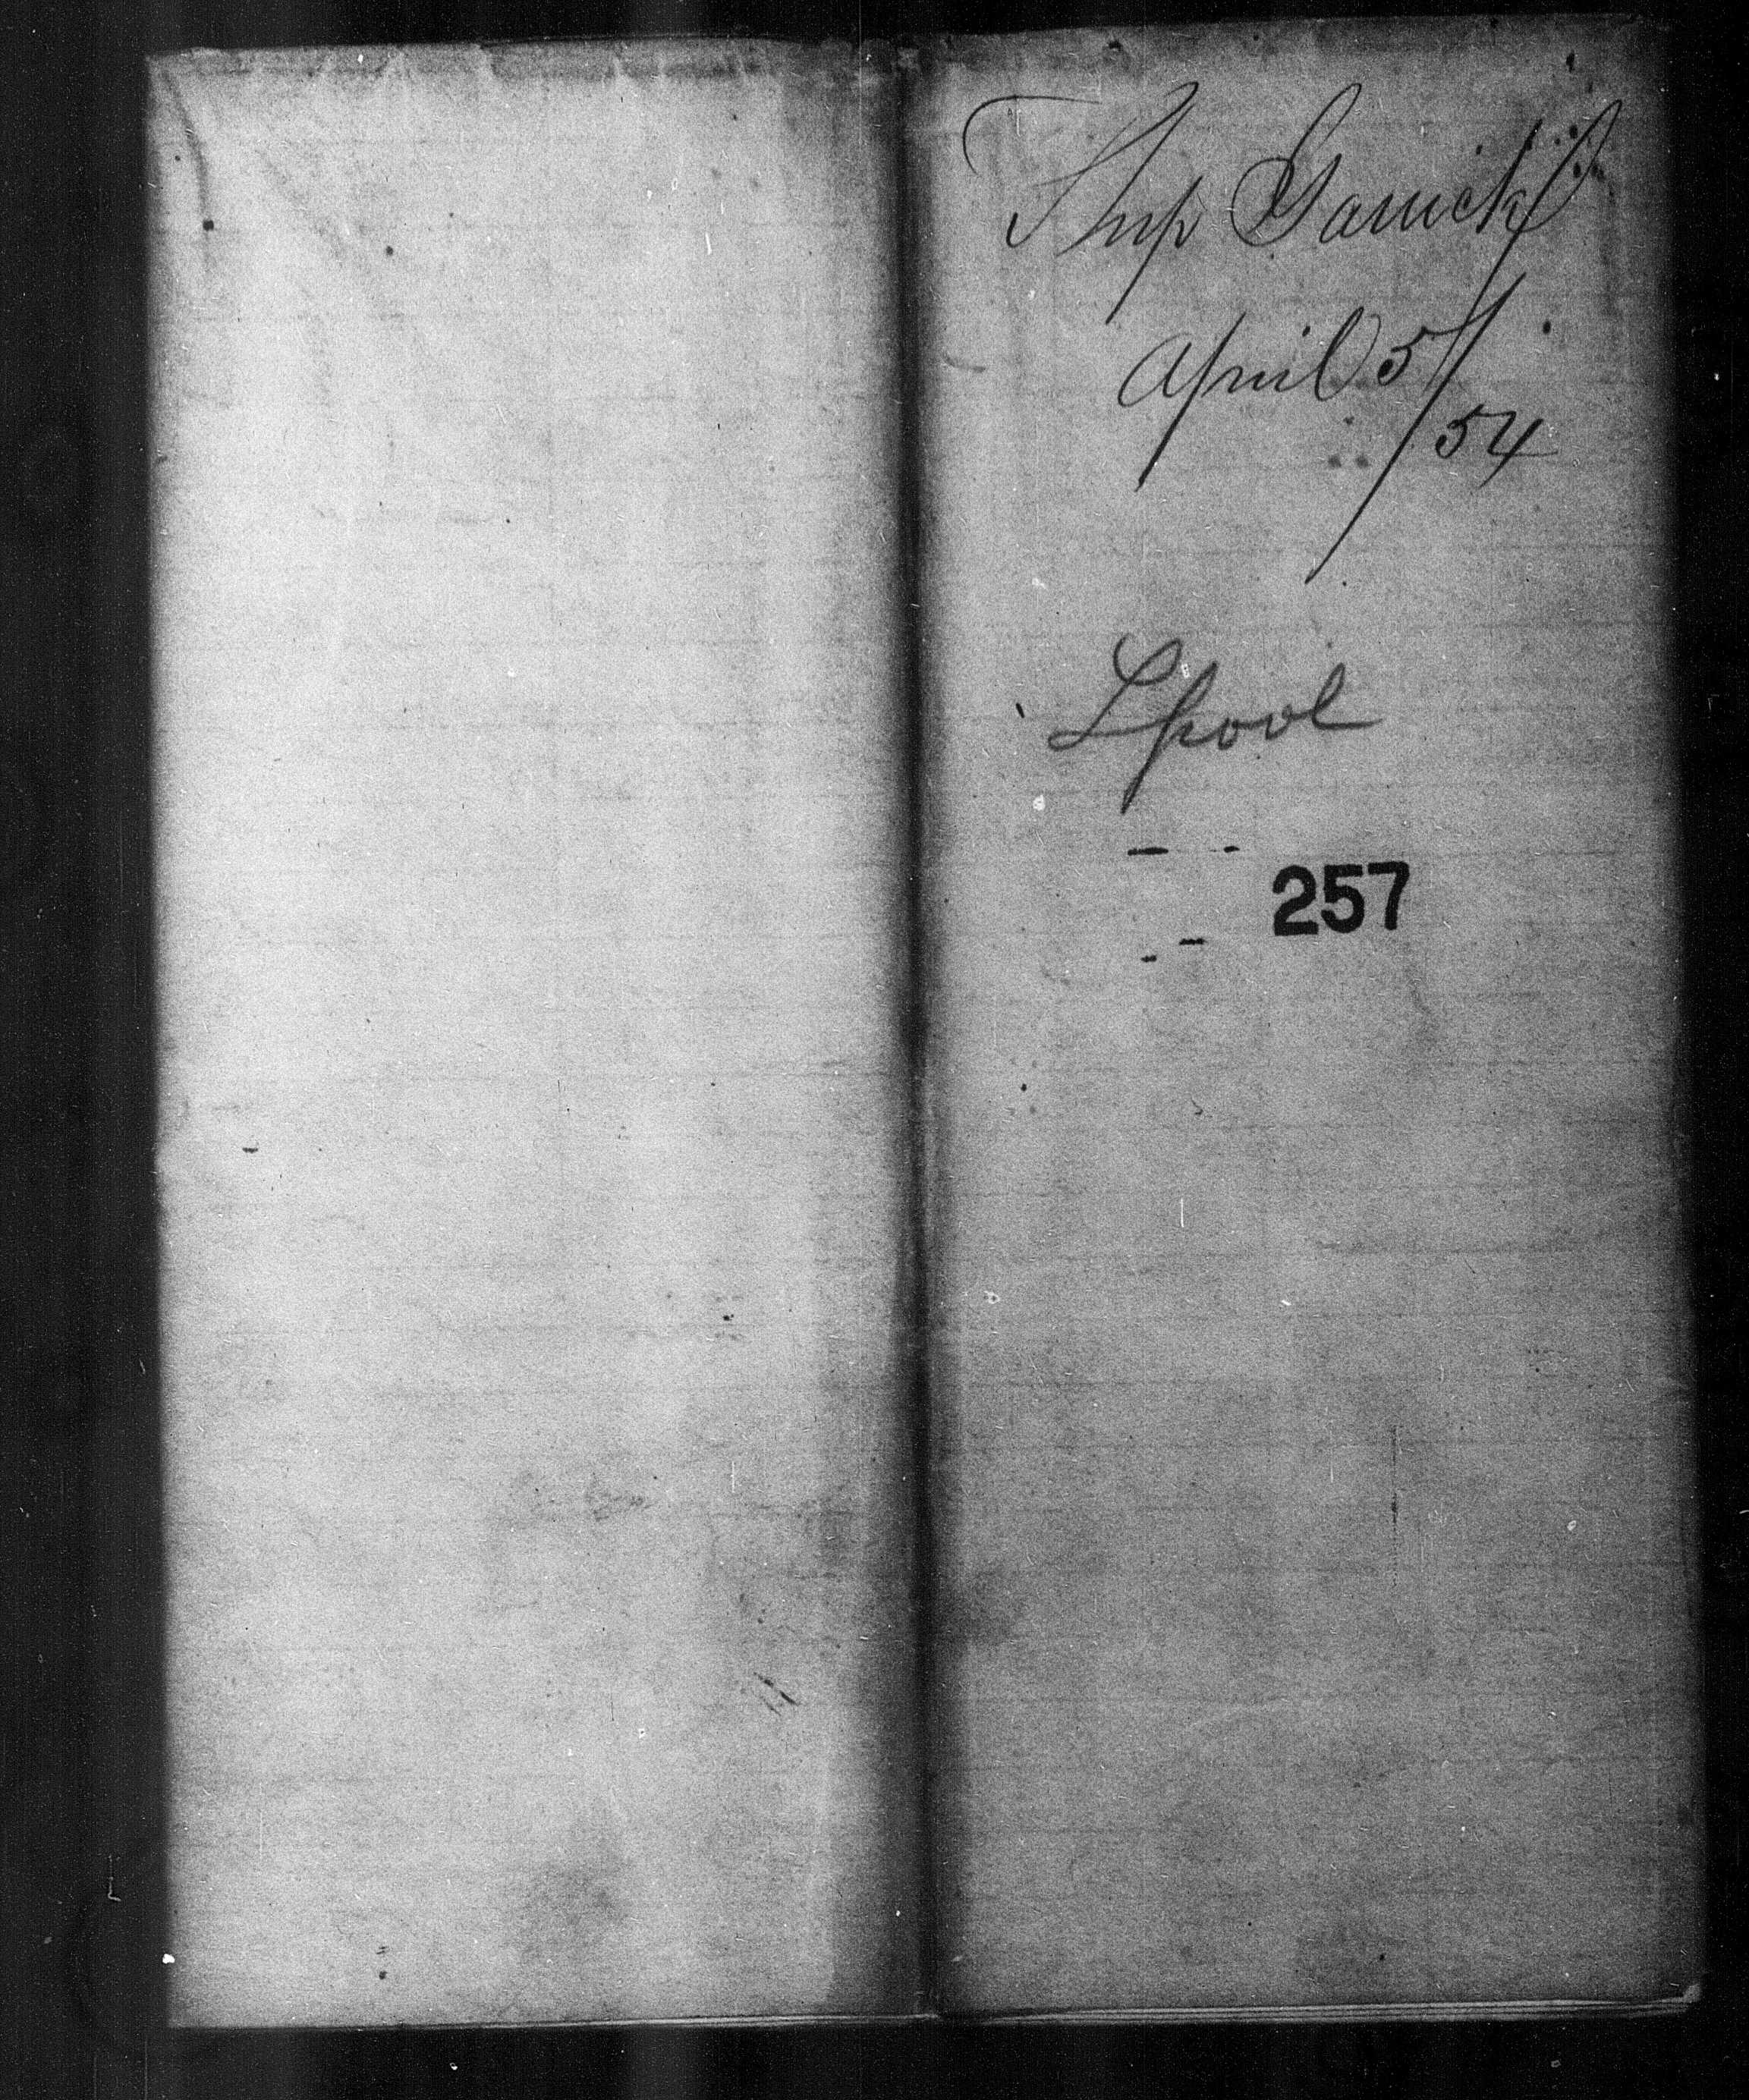 Ship Garrick
April 5/
54
Lpool
257